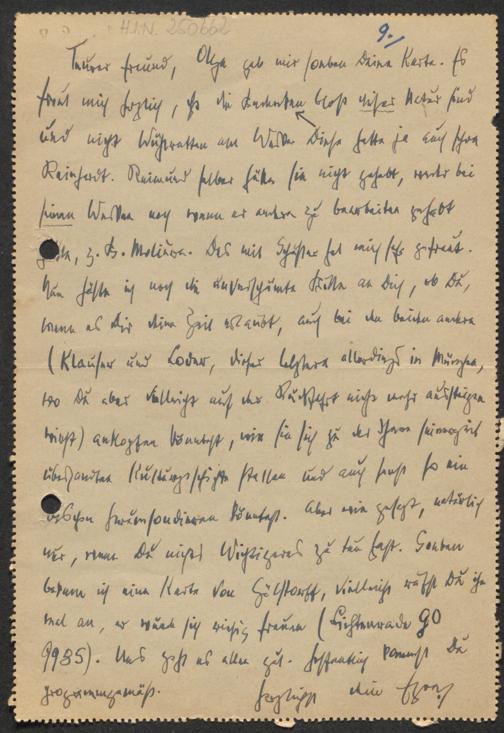 H.I.N. 250662
9./
Teurer Freund, Olga gab mir soeben Deine Karte. Es
freut mich herzlich, daß die Bedenken bloß dieser Natur sind
und nicht Diese hatte ja auch schon
Reinhardt. Raimund selber hätte sie nicht gehabt, weder bei
seinen Werken noch wenn er andere zu bearbeiten gehabt
hätte, z. B. Molière. Das mit Schuster hat mich sehr gefreut.
Nun hätte ich noch die unverschämte Bitte an Dich, ob Du,
wenn es Dir deine Zeit erlaubt, auch bei den beiden andern
(Klauser und Loder, dieser letztere allerdings in München,
wo Du aber vielleicht auf der Rückfahrt nicht mehr aussteigen
wirst) anklopfen könntest, wie sie sich zu der Ihnen
übersandten Kulturgeschichte stellen und auch sonst so ein
bißchen herumsondieren könntest. Aber wie gesagt, natürlich
nur, wenn Du nichts Wichtigeres zu tun hast. Soeben
bekam ich eine Karte von Gülstorff, vielleicht rufst Du ihn
mal an, er würde sich riesig freuen (Lichtenrade G0
9935). Uns geht es allen gut. Hoffentlich kommst Du
programmgemäß. Herzlichst dein Egon